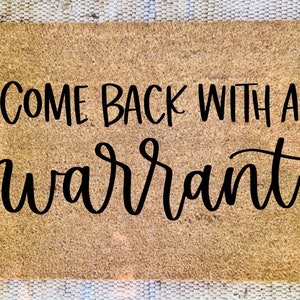 COME BACK WITH A
warrant